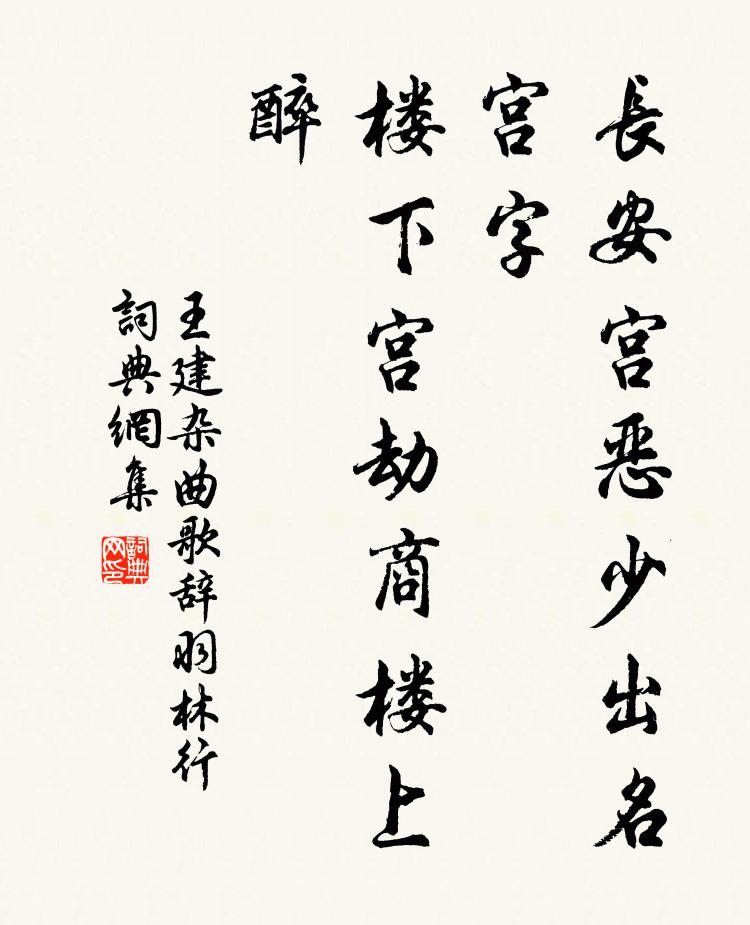 長安宫恶少出名
宫字
楼下宫劫商楼上
醉
王建杂曲歌辞羽林行
詞典網集
詞典
网印